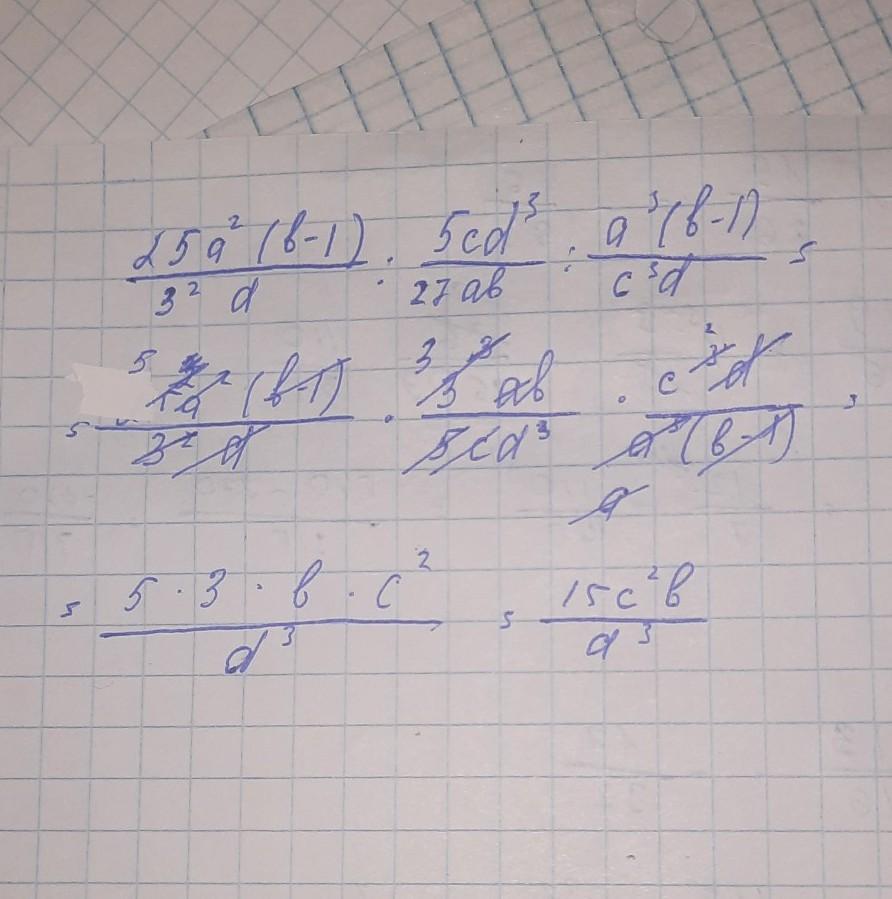 25a²(b-1)/3²d : 5cd³/27ab : a³(b-1)/c³d =
= 5²a²(b-1)/3²d · 3³ab/5cd³ · c³d/a³(b-1) =
= 5·3·b·c²/d³ = 15c²b/d³